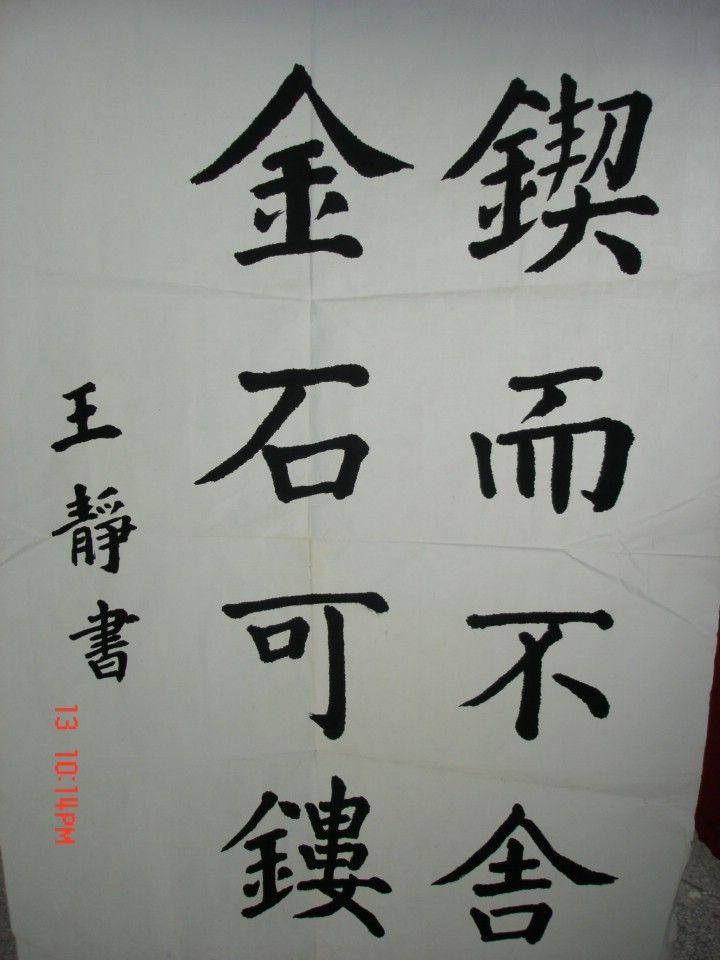 鍥而不舍
金石可鏤
王靜書
13 10:14PM